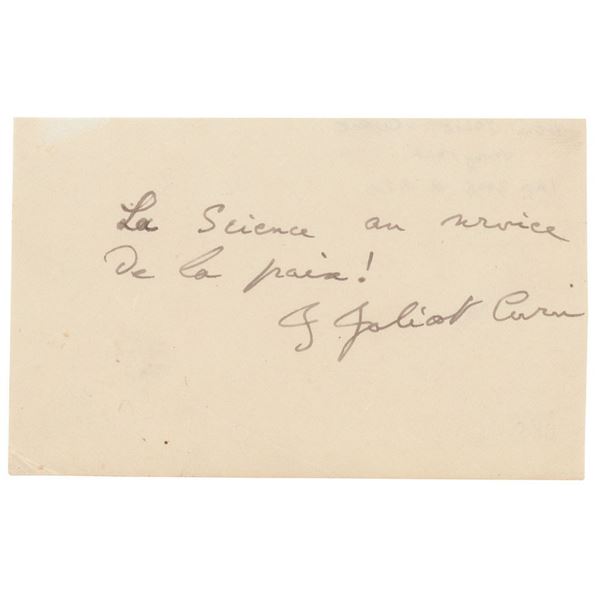 La Science au service
De la paix!
F Joliot Curie